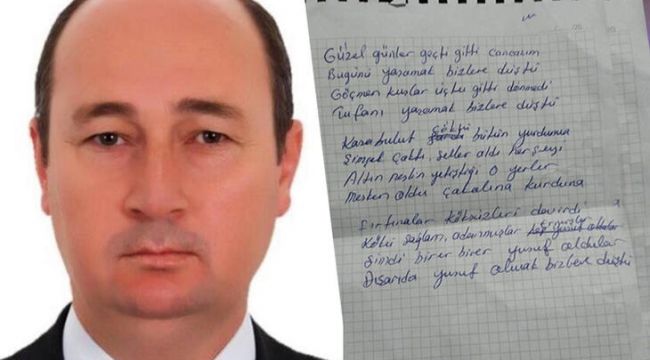 Güzel günler geçti gitti canözüm
Bugünü yaşamak bizlere düştü
Göçmen kuşlar uçtu gitti dönmedi
Tufanı yaşamak bizlere düştü
Karabulut çöktü bütün yurduma
Şimşek çaktı, seller aldı herşeyi
Altın neslin yetiştiği o yerler
Mesken oldu çakalına kurduna
Fırtınalar köksüzleri devirdi
Kökü sağlam, adanmışlar
Şimdi birer birer yusuf oldular
Dışarıda yusuf olmak bizlere düştü